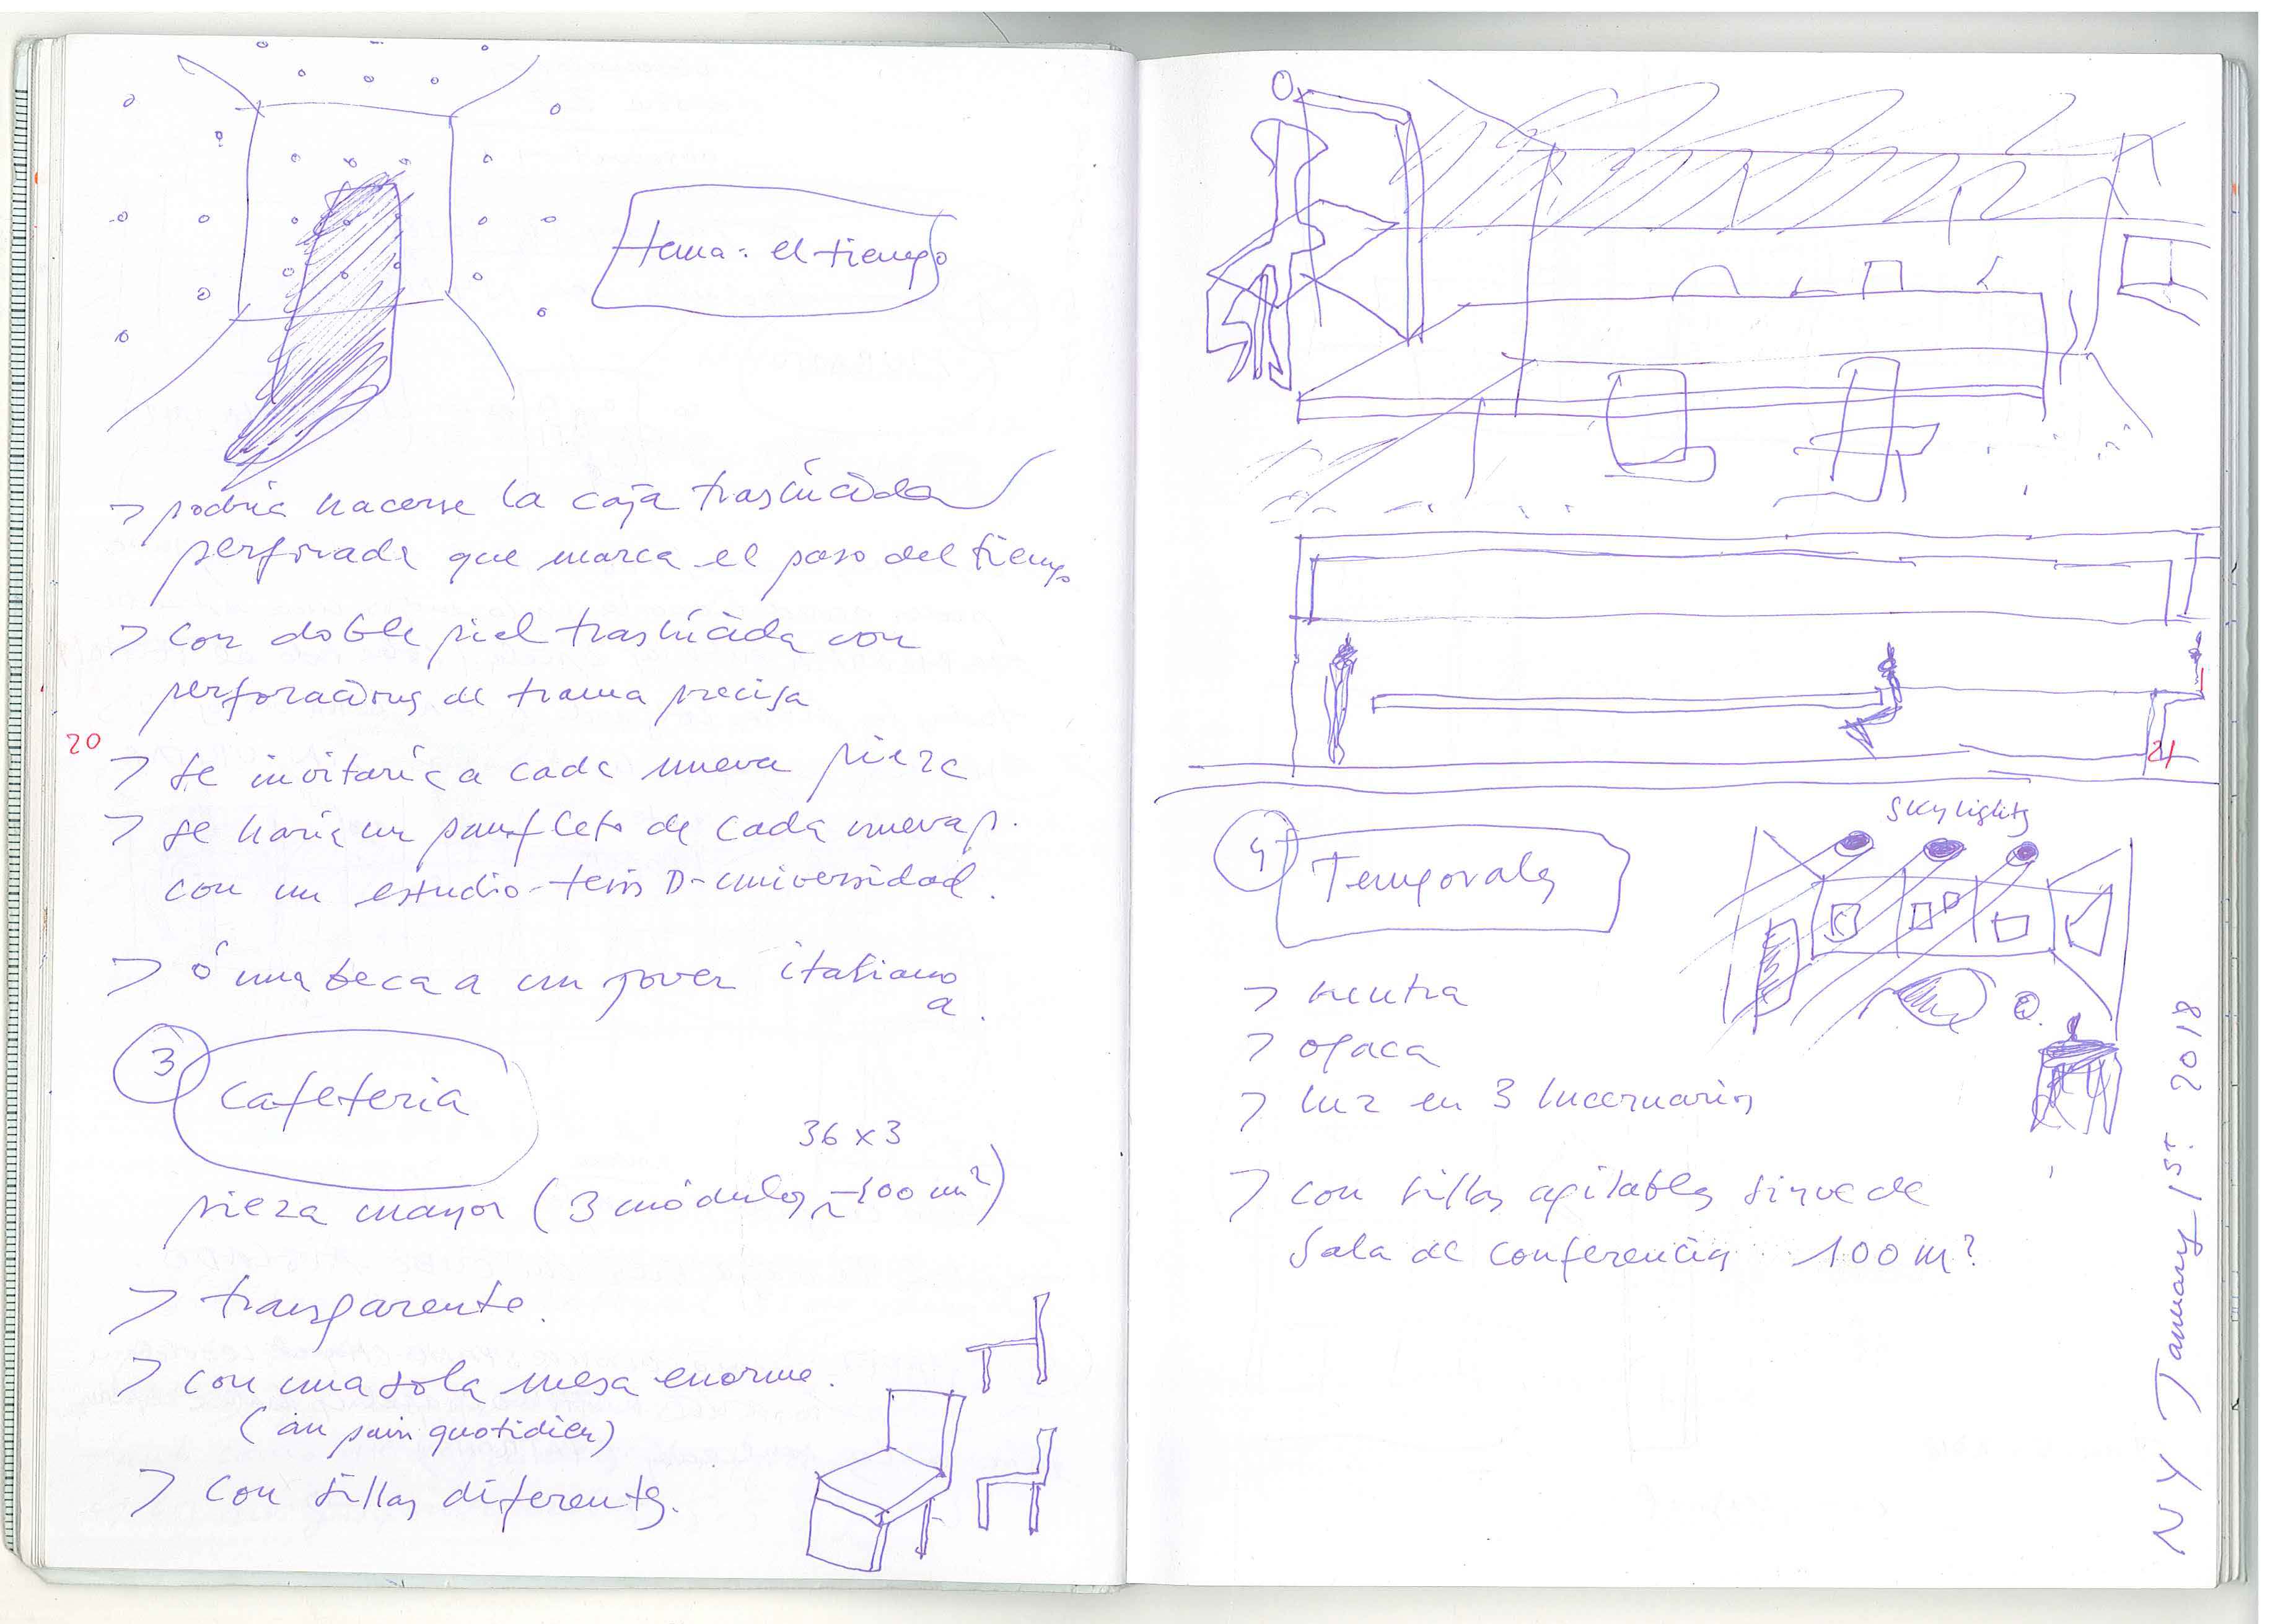 tema: el tiempo
> podría hacerse la caja traslúcida
perforada que marca el paso del tiempo
> con doble piel traslúcida con
perforaciones de trama precisa
20
> se invitaría a cada nueva pieza
> se haría un panfleto de cada nueva p.
con un estudio-tesis D-universidad.
> ó una beca a un joven italiano
a.
3 Cafetería
36 x 3
pieza mayor (3 módulos ~ 100 m²)
> transparente.
> con una sola mesa enorme.
(au pain quotidien)
> con sillas diferentes.
21
skylights
4 Temporales
> neutra
> opaca
> luz en 3 lucernarios
> con sillas apilables sirve de
sala de conferencias 100 m²
NY January 1st. 2018